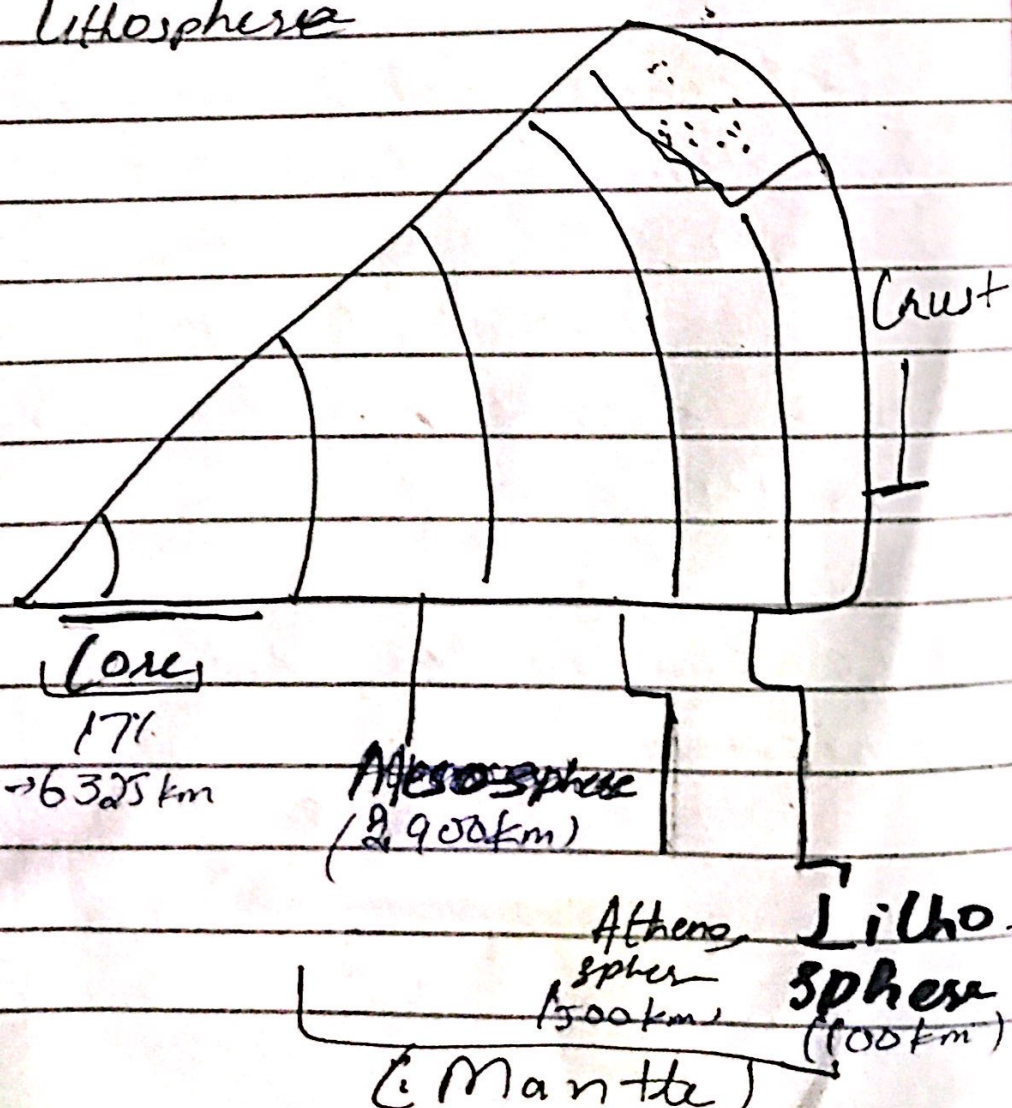 Lithosphere
Crust
Core
17%
→6325km
Mesosphere
(2900km)
Atheno
spher
(500km)
Litho
sphere
(100km)
(Mantle)